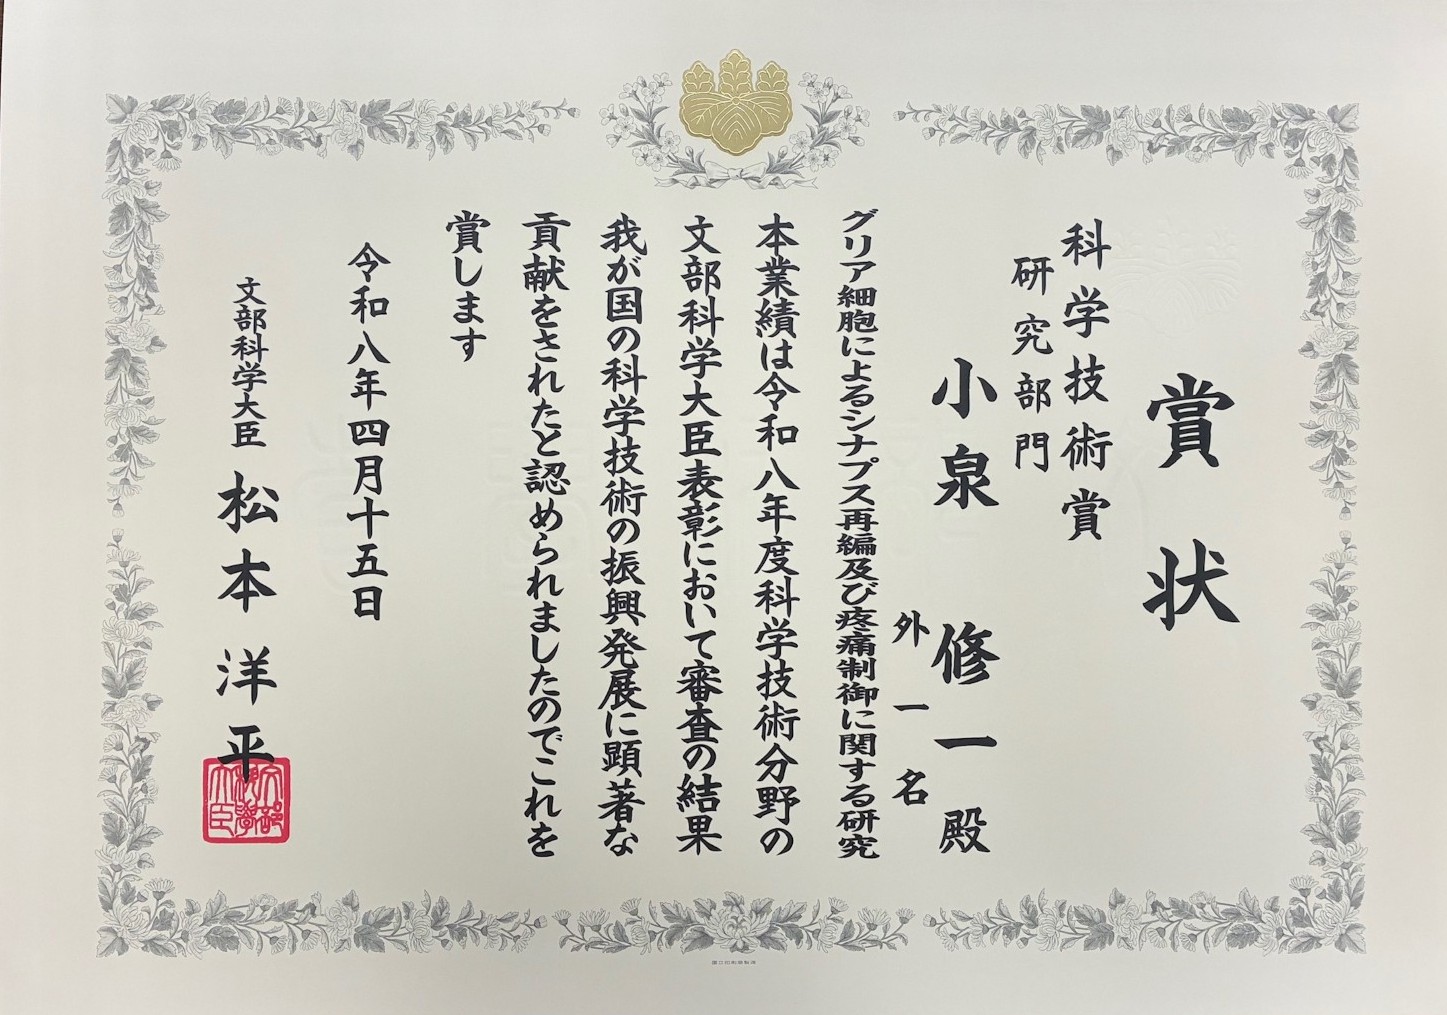 賞状
科学技術賞
研究部門
小泉 修一 殿
外一名
グリア細胞によるシナプス再編及び疼痛制御に関する研究
本業績は令和八年度科学技術分野の
文部科学大臣表彰において審査の結果
我が国の科学技術の振興発展に顕著な
貢献をされたと認められましたのでこれを
賞します
令和八年四月十五日
文部科学大臣 松本洋平
文部科学大臣
国立印刷局製造